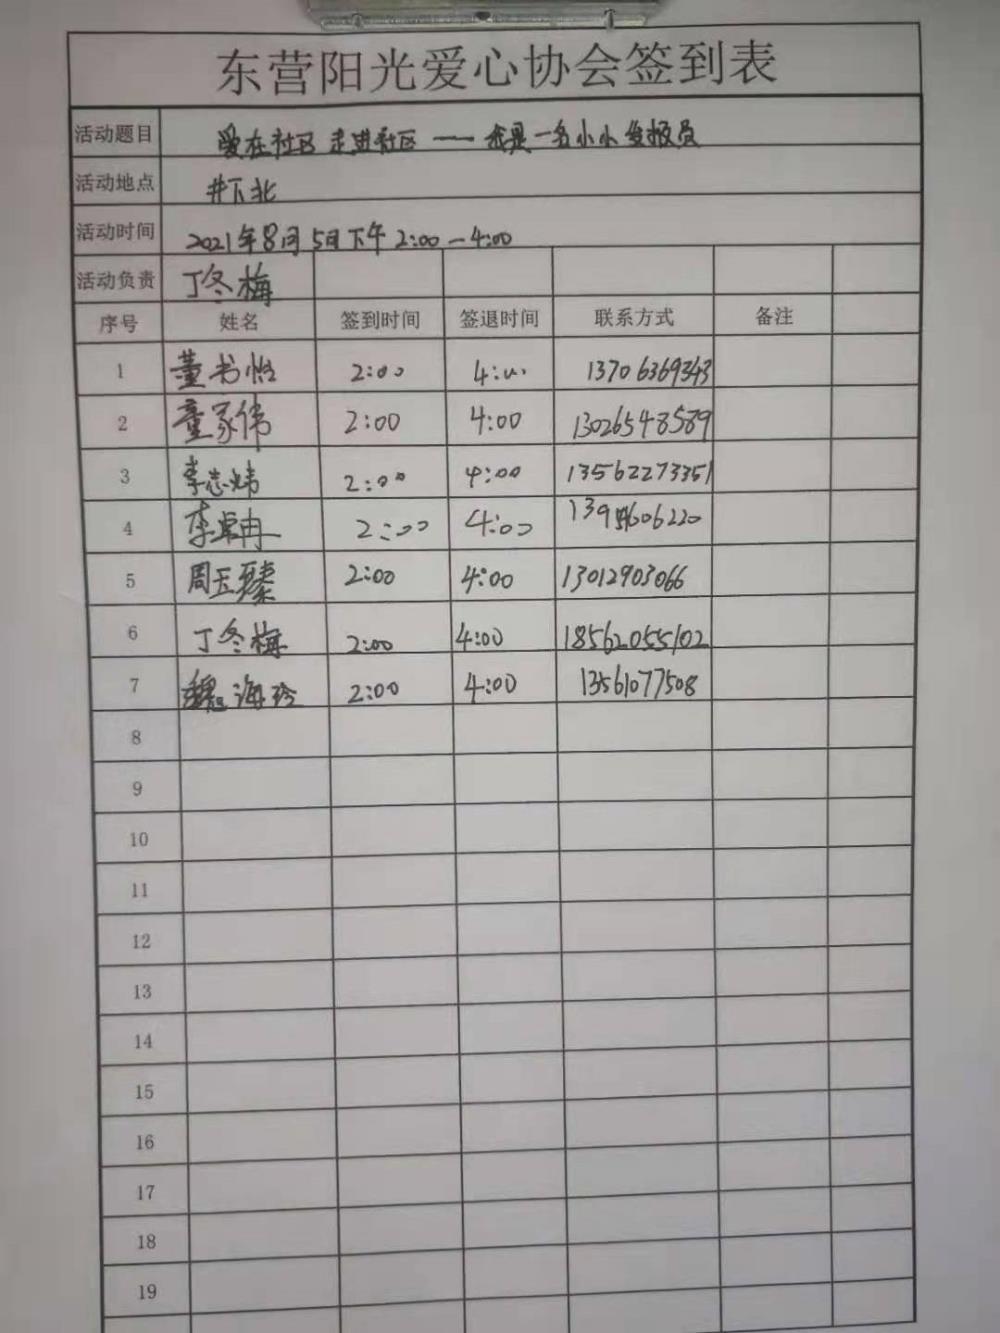 东营阳光爱心协会签到表
活动题目 爱在社区 走进社区 —— 我是一名小小发报员
活动地点 井下北
活动时间 2021年8月5日下午2:00-4:00
活动负责 丁冬梅
序号 姓名 签到时间 签退时间 联系方式 备注
1 董书怡 2:00 4:00 13706369343
2 童家伟 2:00 4:00 13026548589
3 李志炜 2:00 4:00 13562273351
4 李卓冉 2:00 4:00
5 周玉臻 2:00 4:00 13012903066
6 丁冬梅 2:00 4:00 18562055102
7 魏海玲 2:00 4:00 13561077508
8
9
10
11
12
13
14
15
16
17
18
19